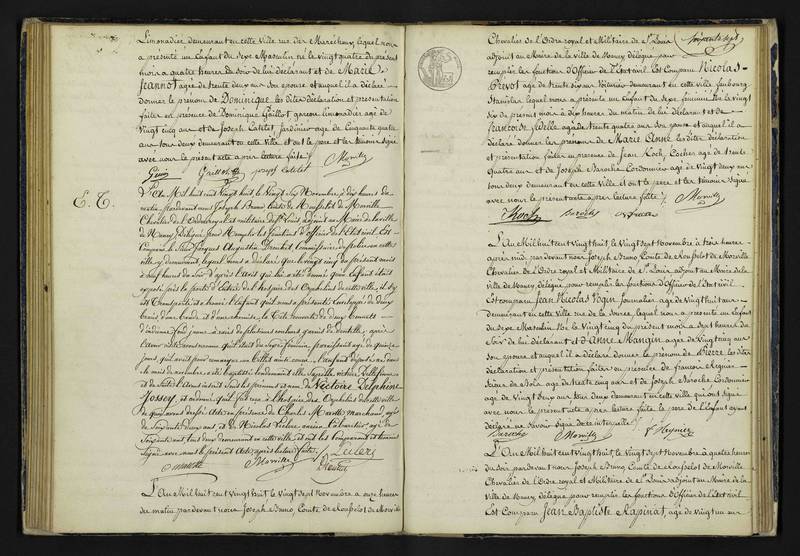 Limonadier demeurant en cette Ville rue des Maréchaux, lequel nous
a présenté un Enfant du Sexe Masculin né le vingt quatre du présent
mois à quatre heures du Soir de lui déclarant et de Marie
Jeannot agée de trente deux ans son épouse et auquel il a déclaré
donner le prénom de Dominique les dites déclaration et présentation
faites en présence de Dominique Gaillot garçon limonadier agé de
vingt cinq ans et de Joseph Catelet Jardinier agé de Cinquante quatre
ans tous deux demeurant en cette Ville et ont le pere et les témoins Signé
avec nous le présent acte après lecture faite
Morville
joseph Catelet
E. T.
L'An Mil huit cent Vingt huit, le Vingt Sept Novembre, à dix heures du
matin, pardevant nous Joseph Bruno Comte de Morville
Chevalier de l'Ordre royal et militaire de St Louis adjoint au Maire de la ville
de Nancy Délégué pour Remplir les fonctions d'Officier de l'Etat civil Est
Comparu le Sieur Jacques Augustin Commissaire de police en cette
ville y demeurant, lequel nous a déclaré que le vingt cinq du présent mois
à neuf heures du Soir d'après l'avis qui lui a été donné que l'enfant était
exposé près la porte d'Entrée de l'hospice des Orphelins de cette ville, il s'y
est transporté et a trouvé l'enfant qu'il nous a présenté enveloppé de deux
la tête couverte de deux bonnets
garnis de dentelle, après
l'avoir visité avons reconnu qu'il était du Sexe féminin, paraissant agé de quinze
jours, qu'il avait pour remarque un Billet ainsi conçu: l'enfant déposé
le mois de novembre a été baptisé
et de Suite l'avons inscrit Sous les prénoms et nom de Victoire Delphine
Jossey, et ordonné qu'il fut remis à l'hospice des Orphelins de cette ville
de quoi avons dressé Acte en présence de Charles Marotte marchand, agé
de Soixante deux ans, et de Nicolas Leclere ancien Cabaretier, agé de
Soixante ans, tous deux demeurant en cette ville, et ont les comparant et témoins
Signé avec nous le présent Acte, après lecture faite.
Marotte
Morville
L'An Mil huit cent Vingt huit, le Vingt Sept Novembre à onze heures
du matin pardevant nous Joseph Bruno, Comte de de Morville
Chevalier de l'Ordre royal et Militaire de St Louis
adjoint au Maire de la ville de Nancy délégué pour
remplir les fonctions d'Officier de l'Etat civil Est Comparu Nicolas
Prevot agé de trente six ans Voiturier demeurant en cette Ville faubourg
Stanislas lequel nous a présenté un Enfant du Sexe féminin Né le Vingt
Six du présent mois à dix heures du matin de lui déclarant et de
Françoise agée de trente quatre ans Son épouse et auquel il a
déclaré donner les prénoms de Marie Anne les dites déclaration
et présentation faites en présence de Jean Koch, Cocher agé de trente
quatre ans et de Joseph Baroche Cordonnier agé de Vingt deux ans
tous deux demeurant en cette Ville et ont le pere et les témoins Signé
avec nous le présent acte après lecture faite
Morville
Koch Baroche
L'An Mil huit cent Vingt huit, le Vingt Sept Novembre à trois heures
après midi pardevant nous Joseph Bruno Comte de de Morville
Chevalier de l'Ordre royal et Militaire de St Louis adjoint au Maire de la
Ville de Nancy, délégué pour remplir les fonctions d'Officier de l'Etat civil
Est comparu Jean Nicolas Journalier agé de Vingt huit ans
Demeurant en cette Ville rue de la Source, lequel nous a présenté un Enfant
du Sexe Masculin Né le Vingt cinq du présent mois à Sept heures du
Soir de lui déclarant et d'Anne Mangin agée de Vingt cinq ans
Son épouse et auquel il a déclaré donner le prénom de Pierre les dites
déclaration et présentation faites en présence de François
agé de trente cinq ans et de Joseph Baroche Cordonnier
agé de Vingt deux ans tous deux demeurant en cette Ville qui ont signé
avec nous le présent acte après lecture faite, le pere de l'Enfant ayant
déclaré ne savoir Signer de ce interpellé
Baroche Morville
L'An Mil huit cent Vingt huit, le Vingt Sept Novembre à quatre heures
du Soir pardevant nous Joseph Bruno Comte de de Morville
Chevalier de l'Ordre royal et Militaire de St Louis adjoint au Maire de la
Ville de Nancy, délégué pour remplir les fonctions d'Officier de l'Etat civil
Est Comparu Jean Baptiste Rapinat, agé de Vingt un ans